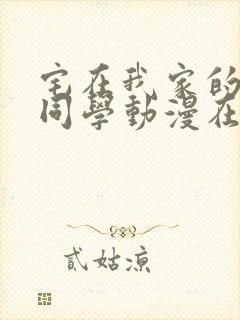 宅在我家的
同學動漫在
貳姑涼